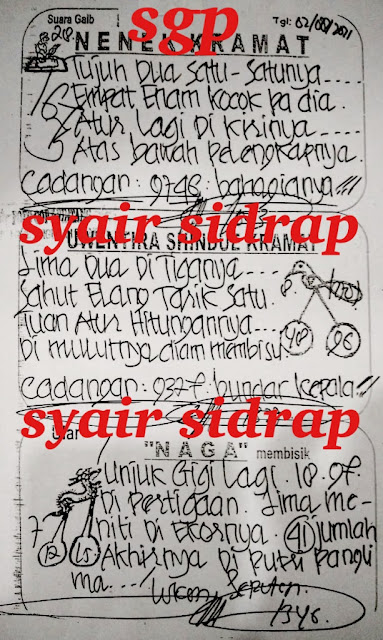 Suara Gaib
Tgl: 02/08/2021
sgp
NENEK KRAMAT
Tujuh Dua Satu-Satunya....
Empat Enam Kocok pa dia.
Atur Lagi Di Kirinya....
Atas bawah pelengkapnya.
Cadangan: 9748. bahagianya!!!
syair sidrap
UWEN FIRA SHINDUE KRAMAT
Lima Dua Di Tiganya....
Sahut Elang Tarik Satu.
Tuan Atur Hitungannya....
Di mulutnya diam membisu.
48 96
Cadangan: 937f. bundar kepala!!
syair sidrap
"NAGA" membisik
Unjuk Gigi Lagi. 18. 9f.
Di Pertigaan. Lima me-
niti Di Ekornya. 41 Jumlah
7 12 15
Akhirnya Di Putri Pangli
ma....